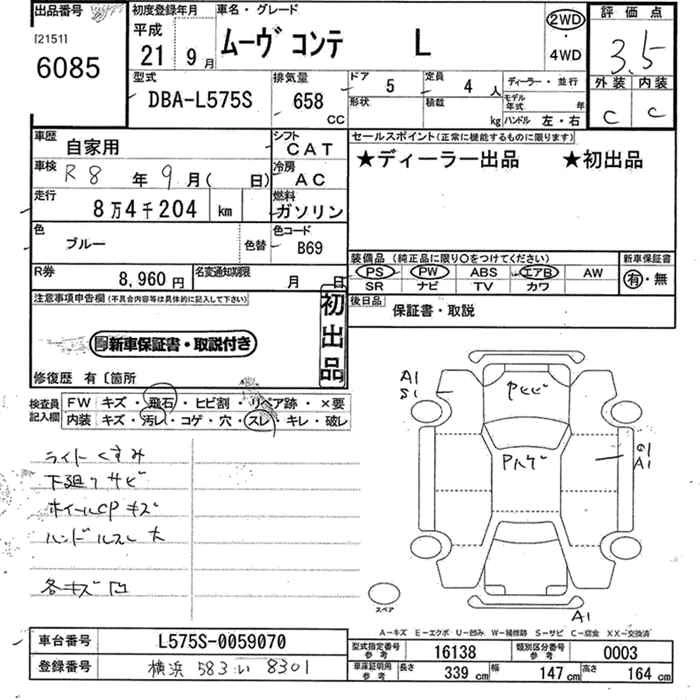 出品番号
[2151]
6085
初度登録年月
平成
21年 9月
車名・グレード
ムーヴ コンテ L
2WD
・
4WD
評価点
3.5
外装 内装
C C
型式
DBA-L575S
排気量
658
CC
ドア 5
形状
定員 4 人
積載 kg
ディーラー・並行
モデル年式 年
ハンドル 左・右
車歴
自家用
シフト
CAT
車検
R8 年 9 月( 日)
冷房
AC
走行
8万4千204 km
燃料
ガソリン
色
ブルー
色替
色コード
B69
R券
8,960 円
名変通知期限
月 日
セールスポイント(正常に機能するものに限ります)
★ディーラー出品 ★初出品
装備品 (純正品に限り○をつけてください)
PS PW ABS エアB AW
SR ナビ TV カワ
新車保証書
有・無
後日品
保証書・取説
注意事項申告欄(不具合内容等は具体的に記入して下さい)
初出品
新車保証書・取説付き
修復歴 有〔箇所
検査員記入欄
FW キズ・飛石・ヒビ割・リペア跡・×要
内装 キズ・汚レ・コゲ・穴・スレ・キレ・破レ
ライトくすみ
下廻りサビ
ホイールCPキズ
ハンドルスレ大
各キズ凹
A1
S1
Pヒビ
Pハゲ
A1
A1
スペア
A-キズ E-エクボ U-凹み W-補修跡 S-サビ C-腐食 XX-交換済
車台番号
L575S-0059070
登録番号
横浜 583 い 8301
型式指定番号
参考
16138
類別区分番号
参考
0003
車庫証明用
参考
長さ 339 cm 幅 147 cm 高さ 164 cm